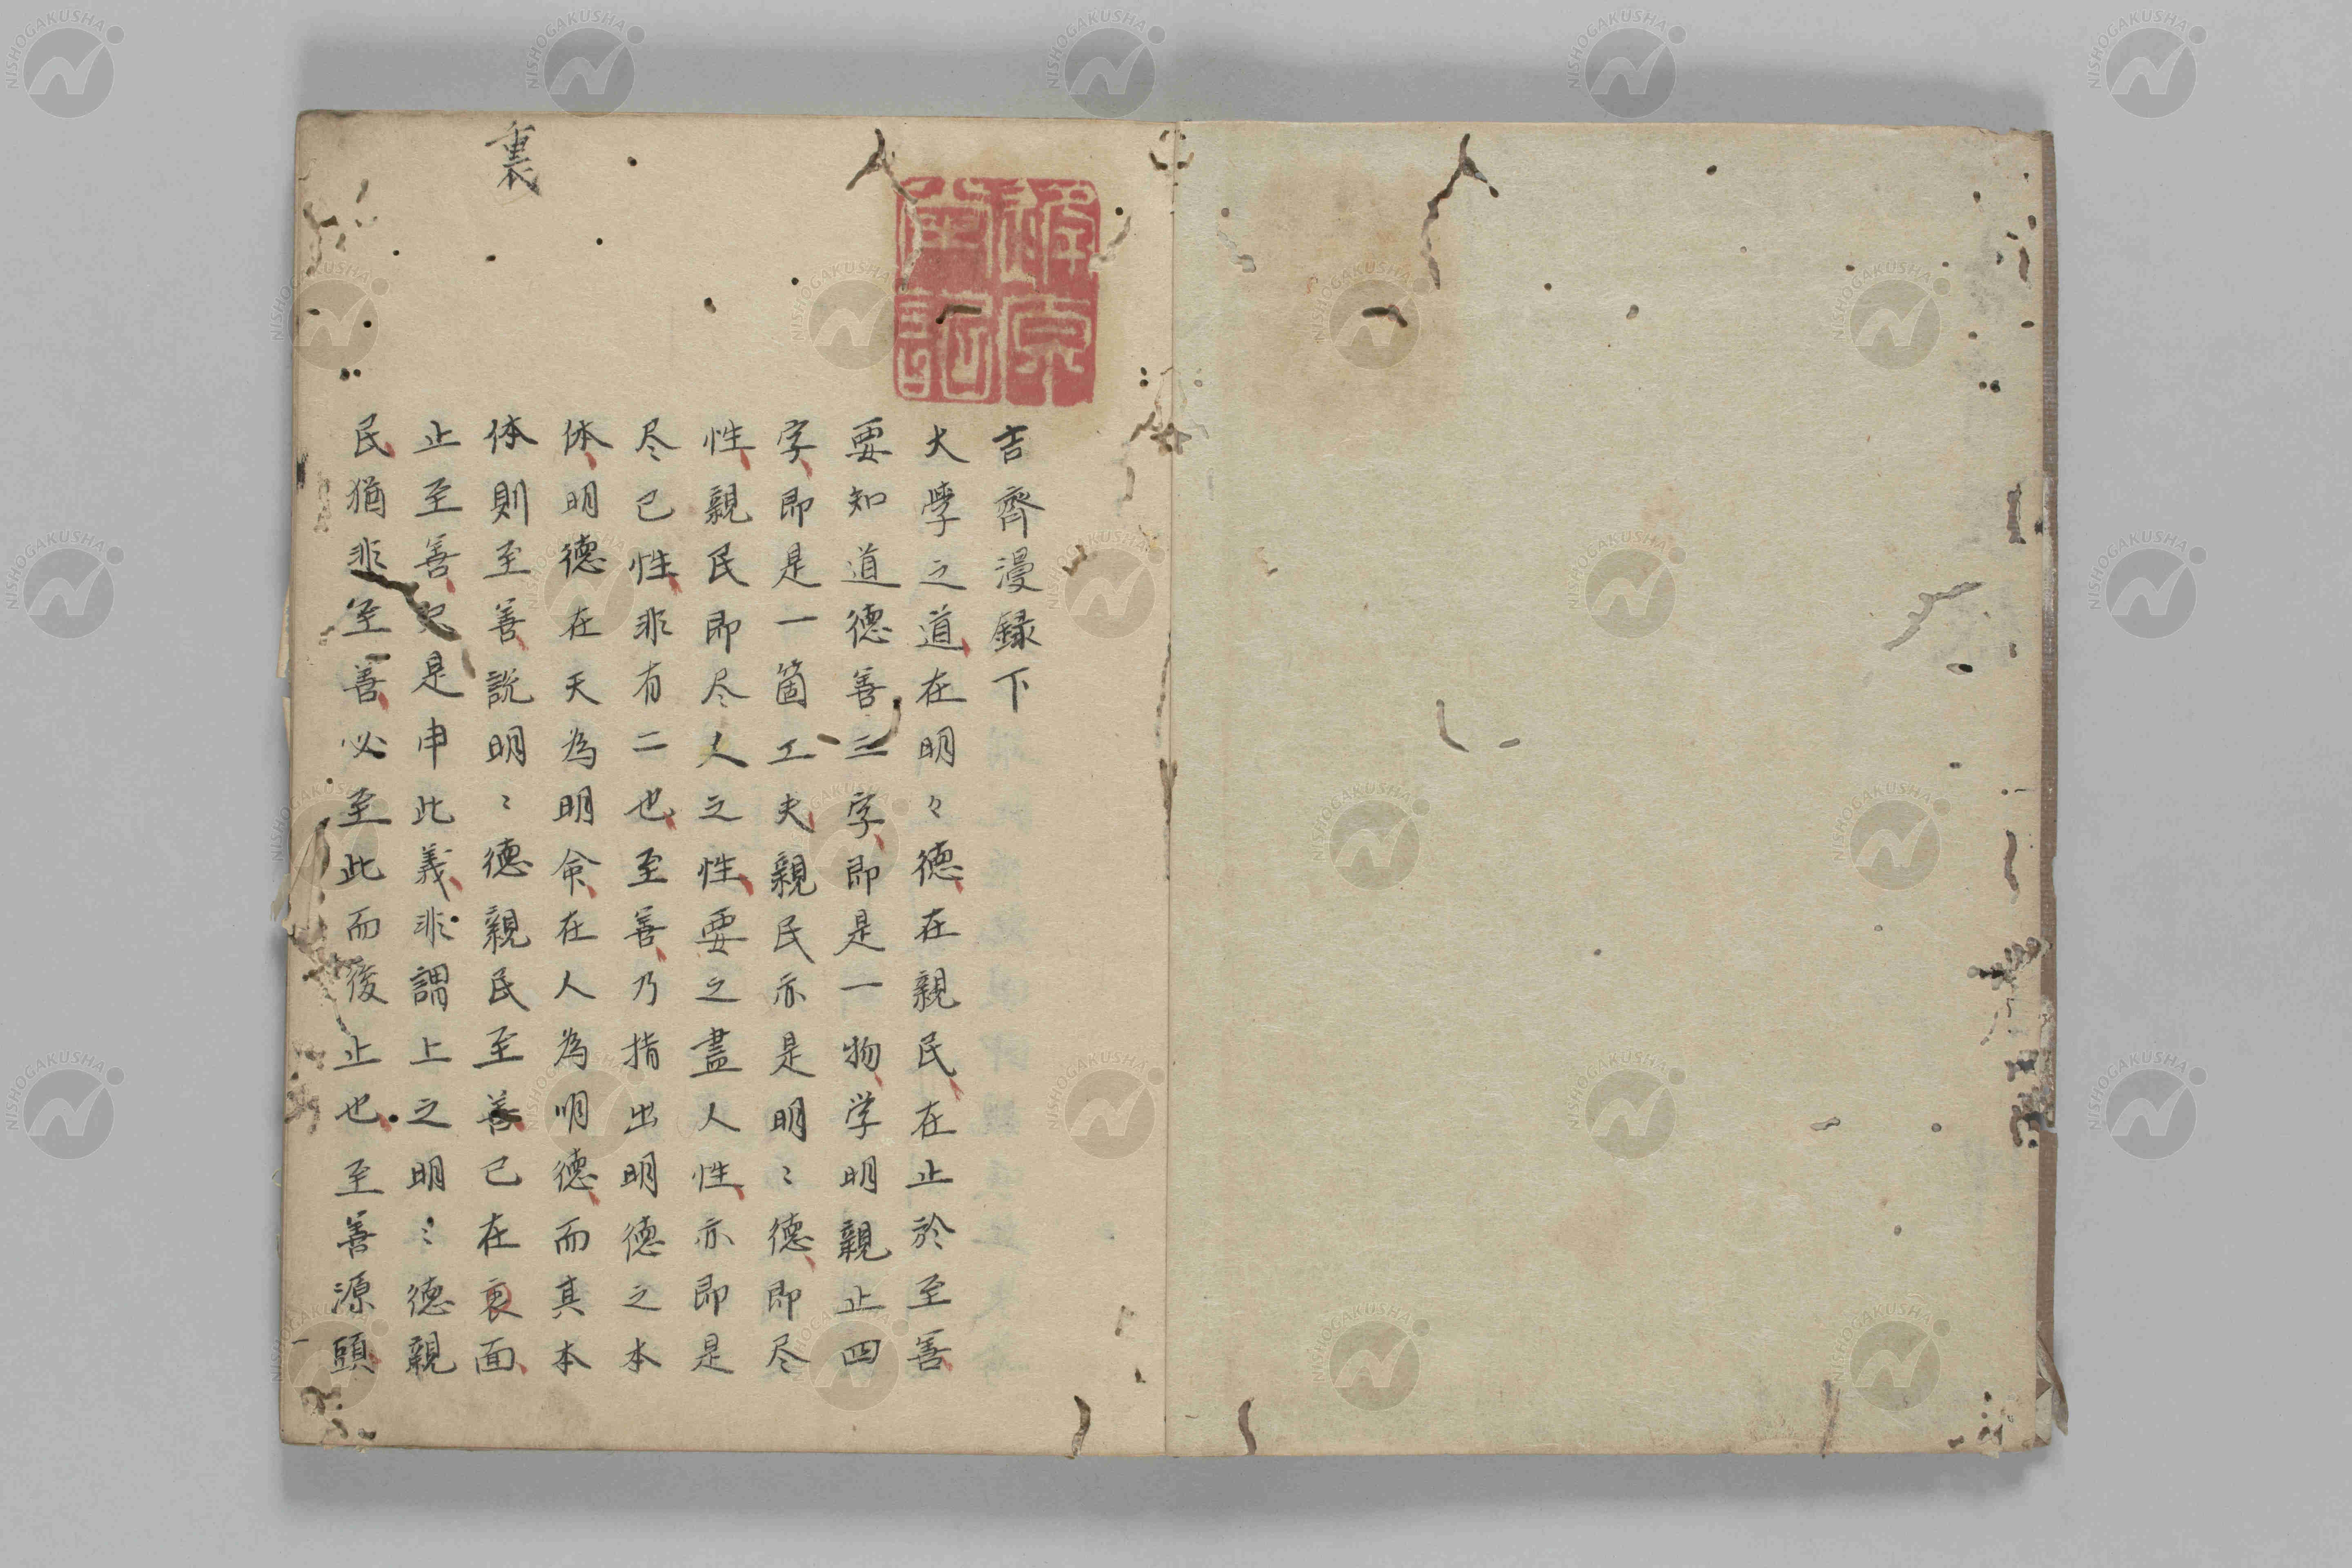 吉齊漫録下
大學之道在明々德在親民在止於至善
要知道德善三字即是一物学明親止四
字即是一箇工夫親民亦是明〻德即尽
性親民即尽人之性要之盡人性亦即是
尽己性非有二也至善乃指出明德之本
体明德在天為明命在人為明德而其本
体則至善說明〻德親民至善已在裏面
止至善只是申此義非謂上之明〻德親
民猶非至善必至此而後止也至善源頭
裏
NISHOGAKUSHA